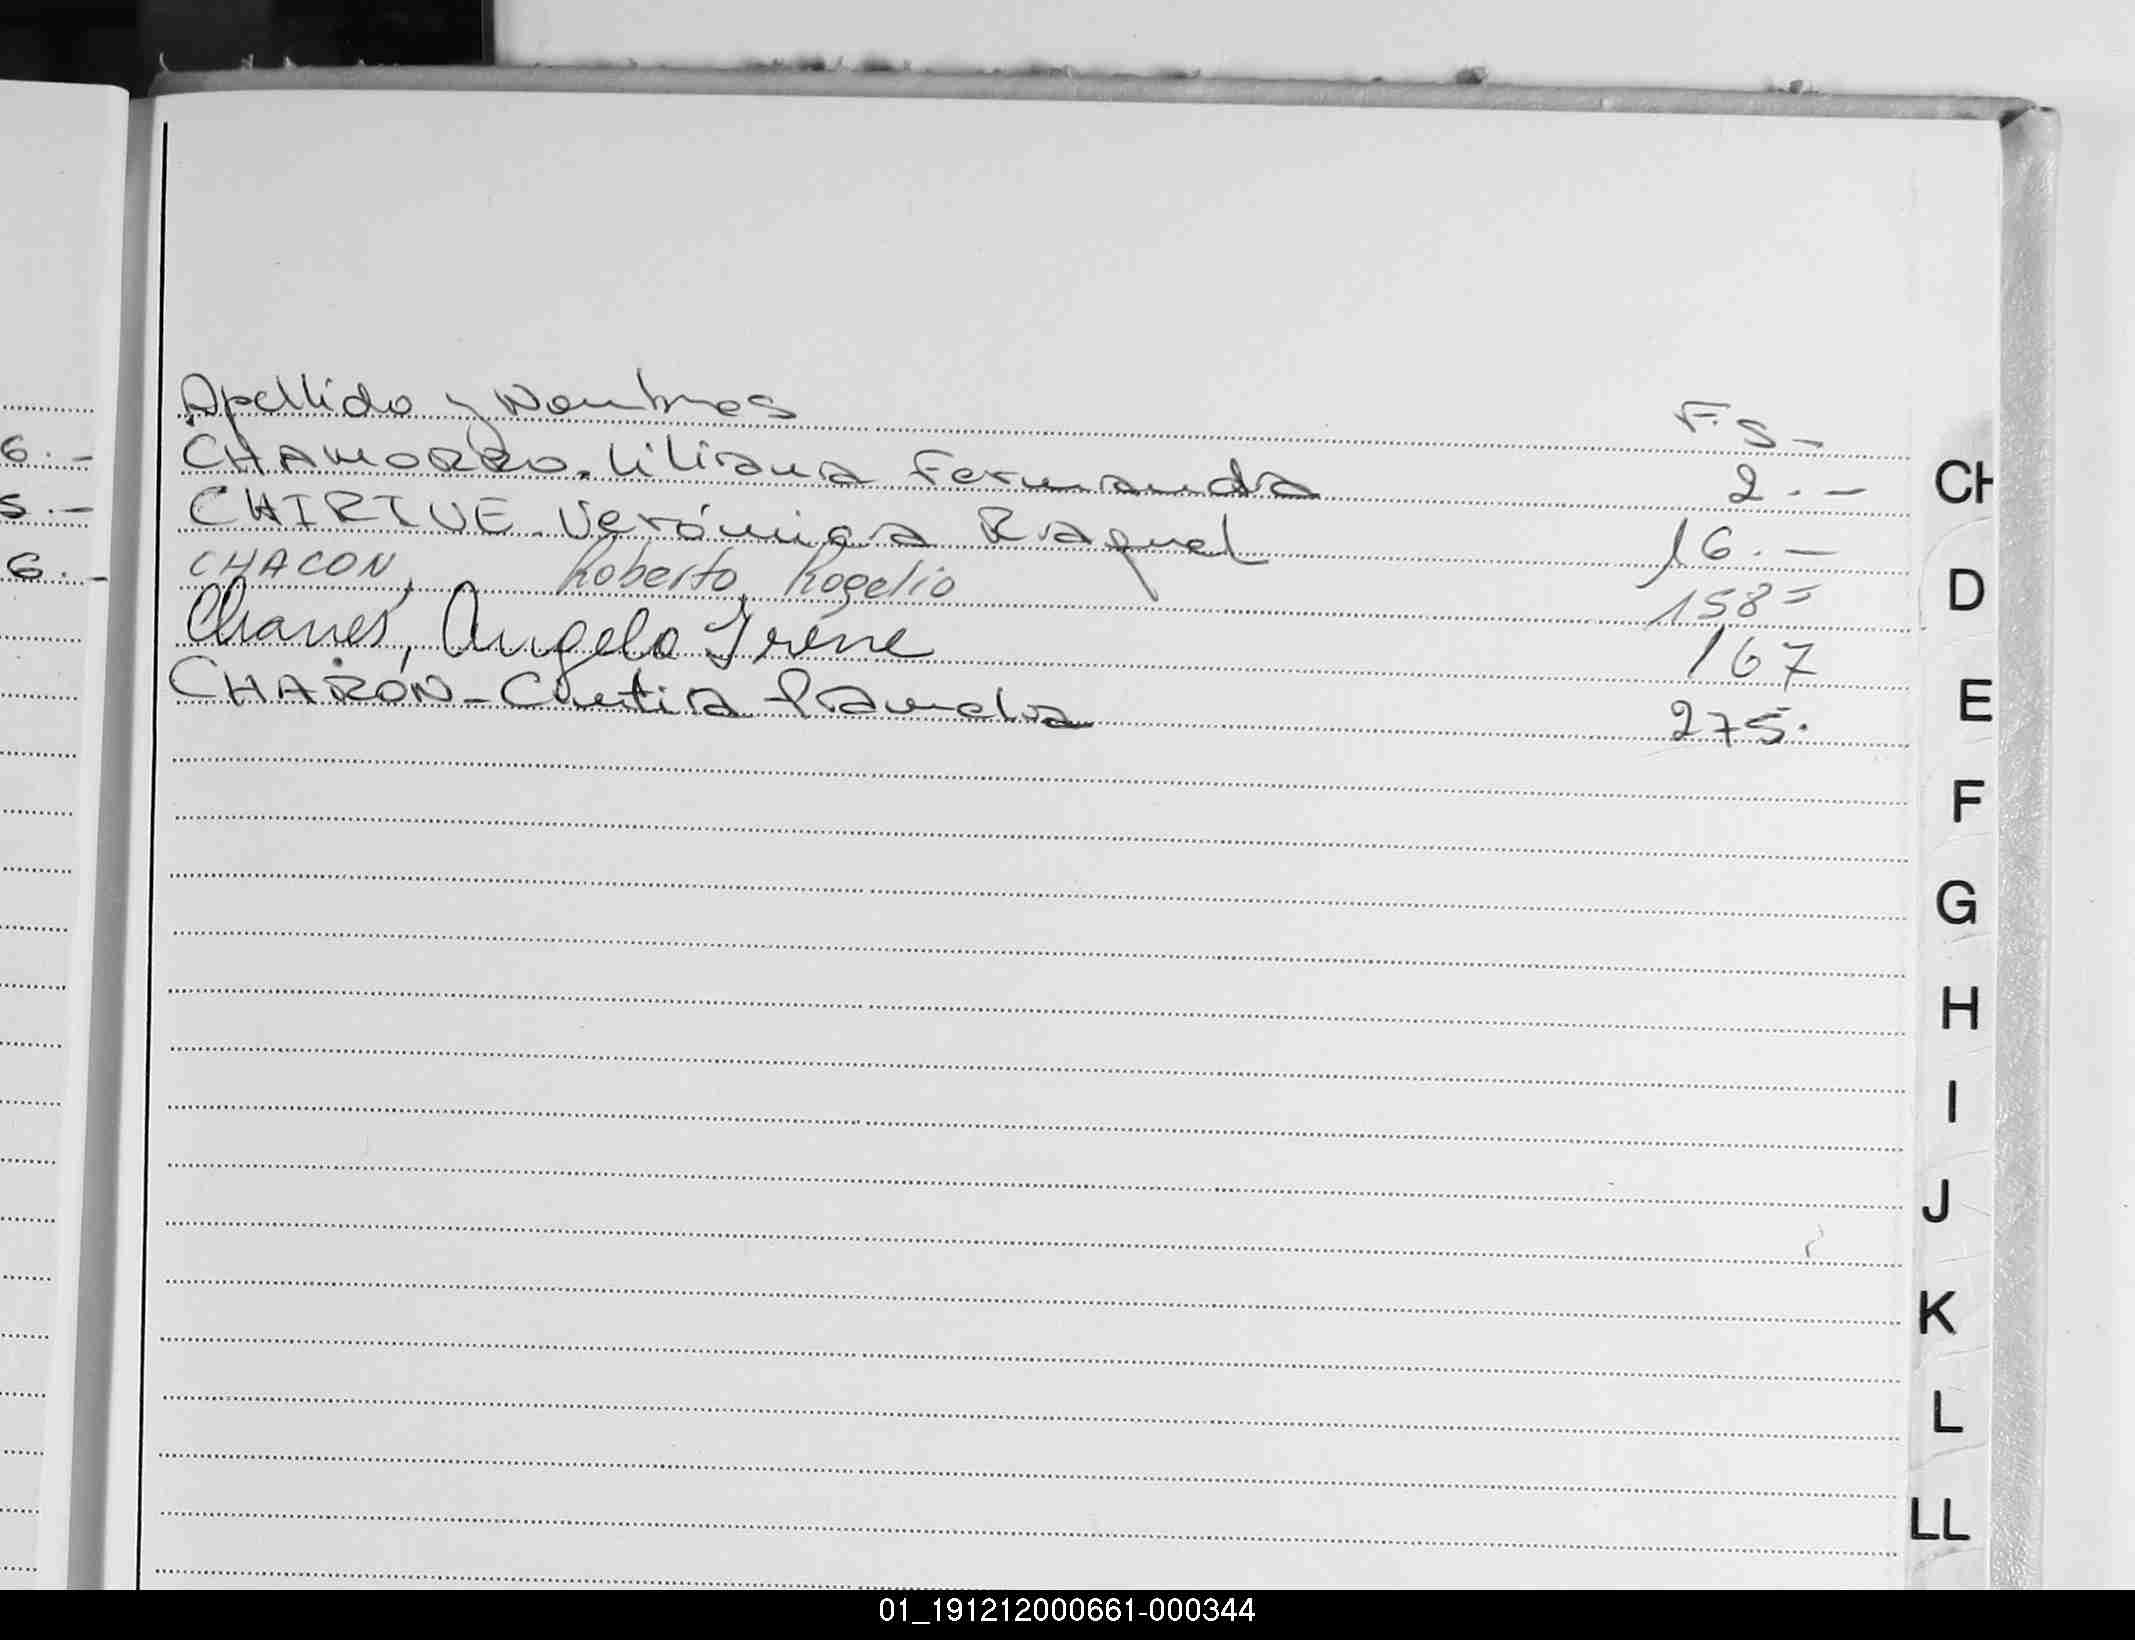 Apellido y Nombres F.S-
CHAMORRO-Liliana Fernanda 2.-
CHIRIVE-Verónica Raquel 16.-
CHACON, Roberto, Rogelio 158=
Chanes, Angela Irene 167
CHARON-Cintia 275.
6.-
5.-
6.-
CH
D
E
F
G
H
I
J
K
L
LL
01_191212000661-000344